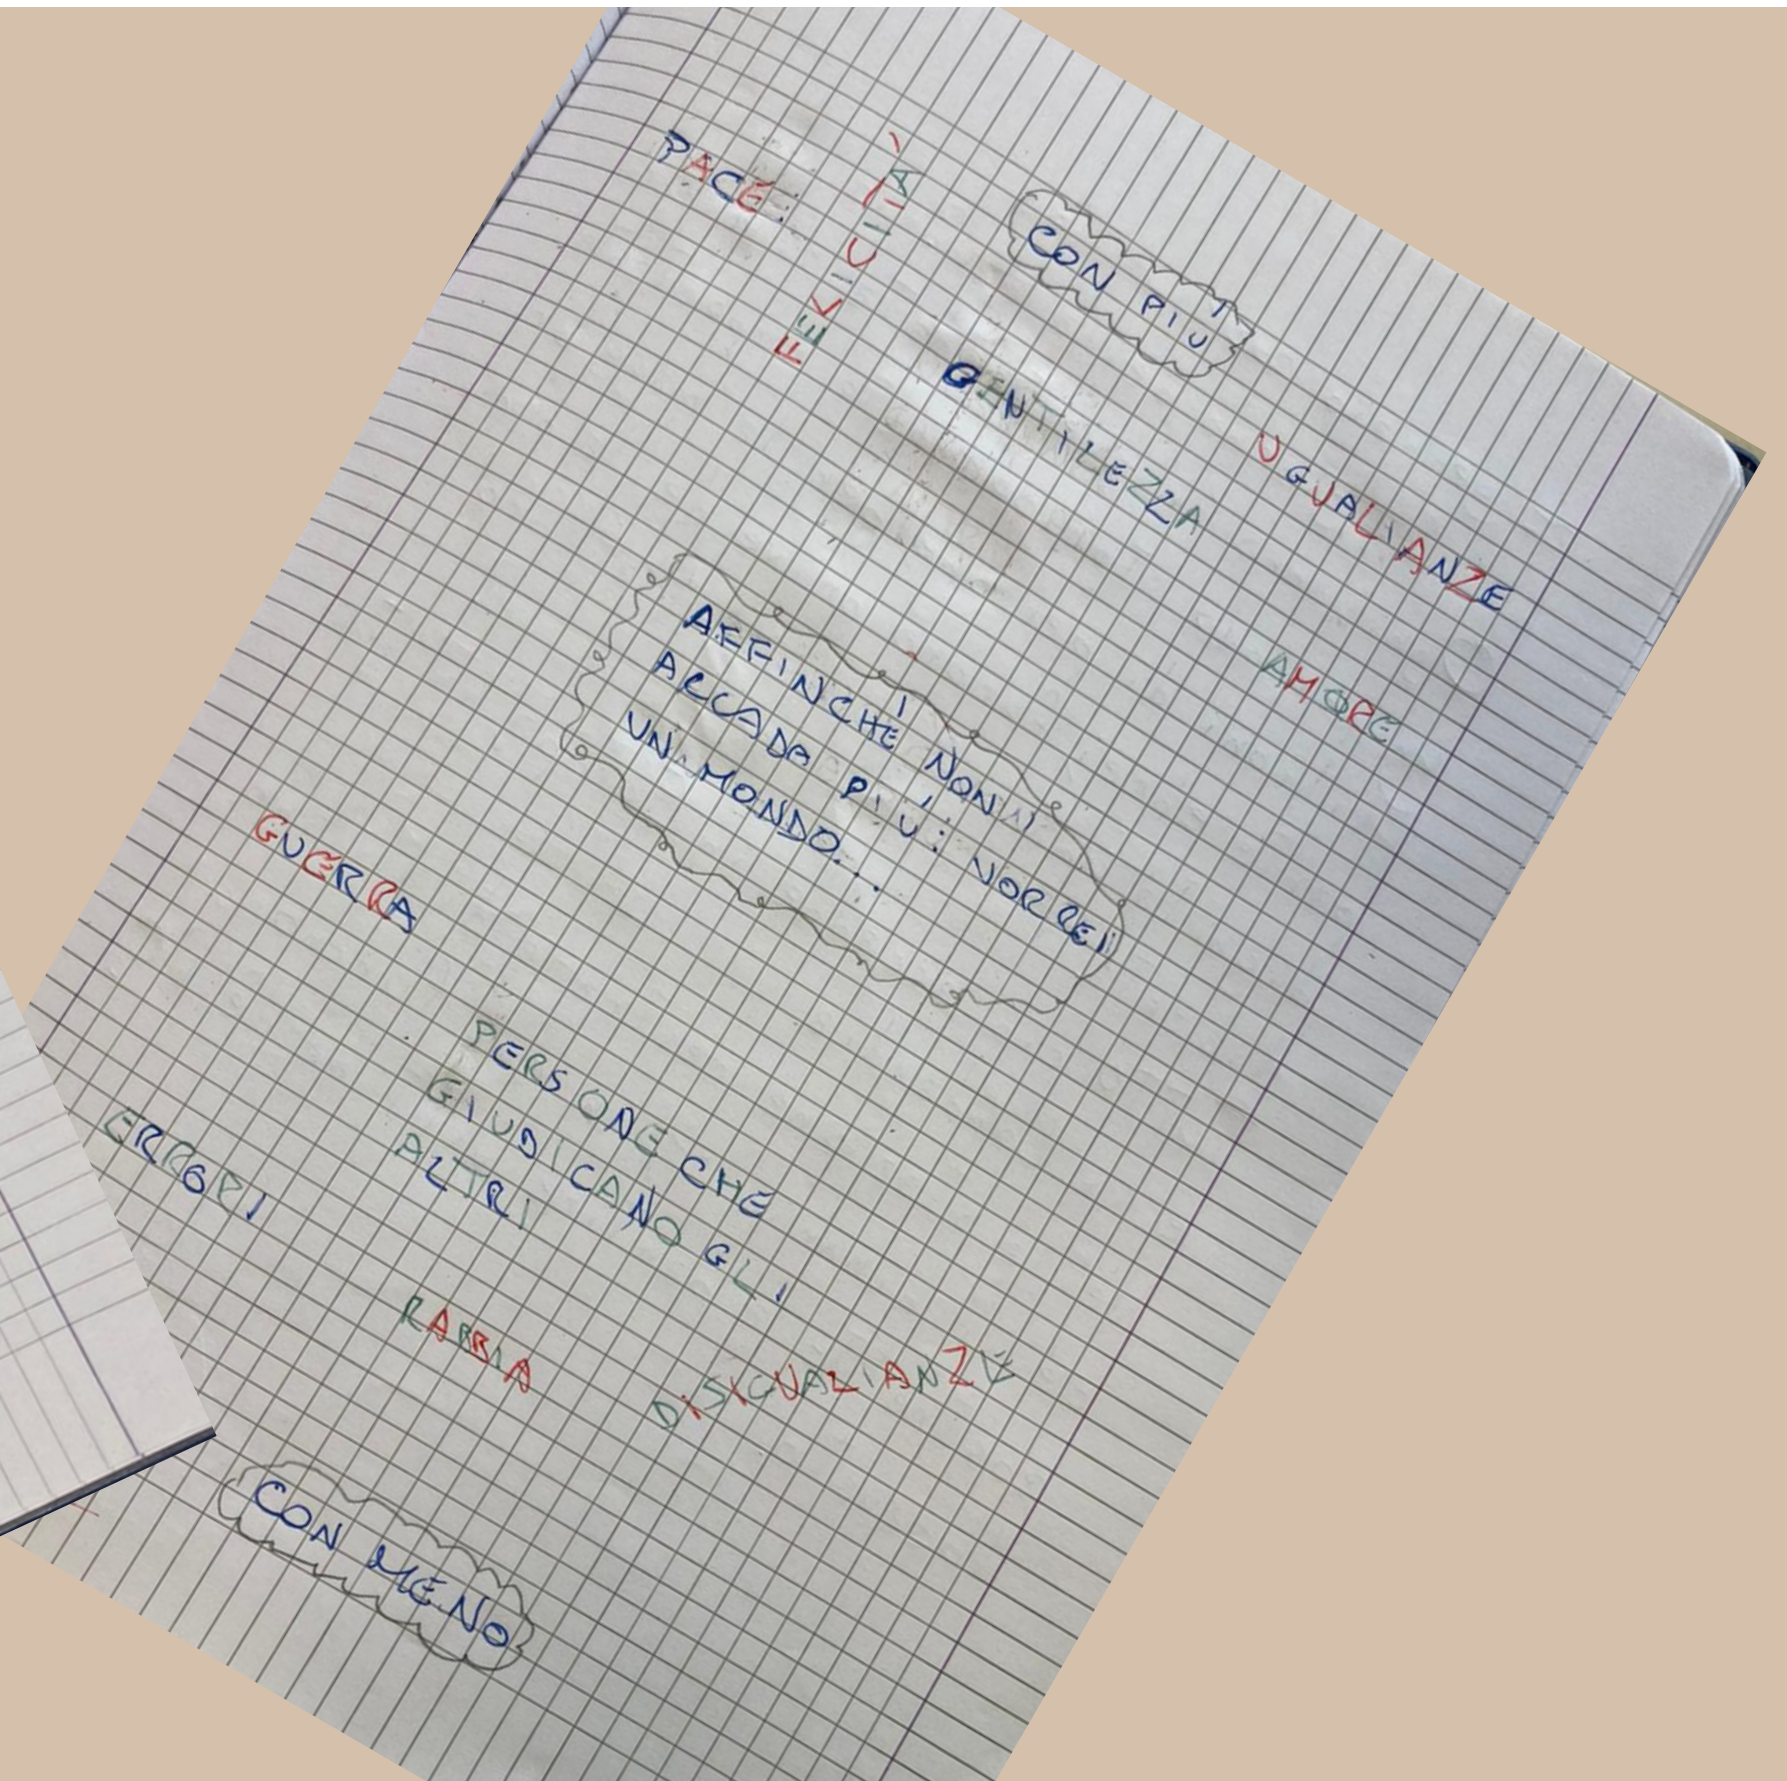 CON PIÙ
PACE:
FELICITÀ
GENTILEZZA
UGUALIANZE
AMORE
AFFINCHÉ NON
ACCADA PIÙ: VORREI
UN MONDO...
GUERRA
PERSONE CHE
GIUDICANO GLI
ALTRI
ERRORI
RABBIA
DISIGUALIANZE
CON MENO